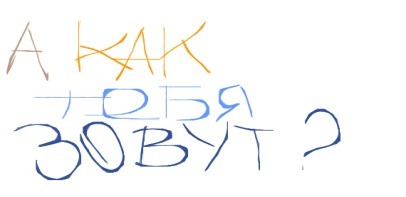 А КАК
ТЕБЯ
ЗОВУТ ?